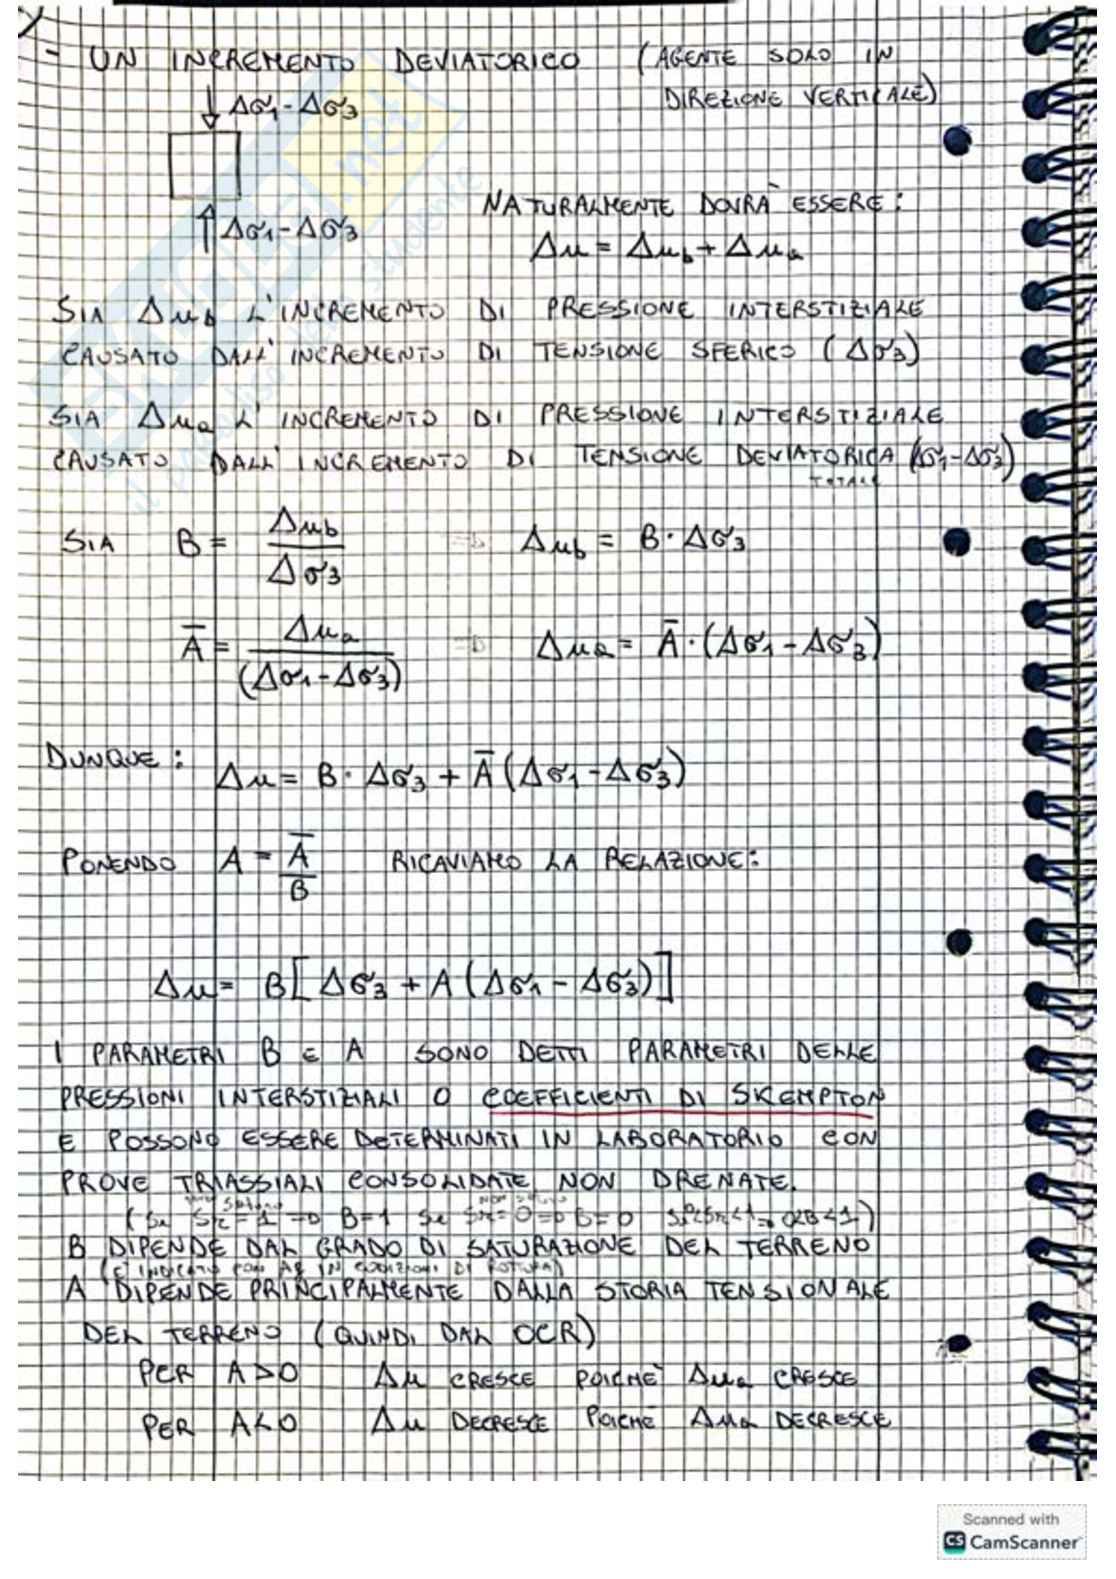 - UN INCREMENTO DEVIATORICO (AGENTE SOLO IN
DIREZIONE VERTICALE)
Δσ1-Δσ3
Δσ1-Δσ3
NATURALMENTE DOVRÀ ESSERE:
Δu = Δub + Δua
SIA Δub L'INCREMENTO DI PRESSIONE INTERSTIZIALE
CAUSATO DALL'INCREMENTO DI TENSIONE SFERICO (Δσ3)
SIA Δua L'INCREMENTO DI PRESSIONE INTERSTIZIALE
CAUSATO DALL'INCREMENTO DI TENSIONE DEVIATORICA (Δσ1-Δσ3)
TOTALE
SIA B = Δub / Δσ3 => Δub = B · Δσ3
Ā = Δua / (Δσ1-Δσ3) => Δua = Ā · (Δσ1-Δσ3)
DUNQUE: Δu = B · Δσ3 + Ā (Δσ1-Δσ3)
PONENDO A = Ā / B RICAVIAMO LA RELAZIONE:
Δu = B[Δσ3 + A (Δσ1 - Δσ3)]
I PARAMETRI B E A SONO DETTI PARAMETRI DELLE
PRESSIONI INTERSTIZIALI O COEFFICIENTI DI SKEMPTON
E POSSONO ESSERE DETERMINATI IN LABORATORIO CON
PROVE TRIASSIALI CONSOLIDATE NON DRENATE.
(Se Sr = 1 => B=1 Se Sr = 0 => B=0 Se 0<Sr<1 => 0<B<1)
B DIPENDE DAL GRADO DI SATURAZIONE DEL TERRENO
(E' INDICATO CON Af IN CONDIZIONI DI ROTTURA)
A DIPENDE PRINCIPALMENTE DALLA STORIA TENSIONALE
DEL TERRENO (QUINDI DAL OCR)
PER A>0 Δu CRESCE POICHÈ Δua CRESCE
PER A<0 Δu DECRESCE POICHÈ Δua DECRESCE
Scanned with
CS CamScanner